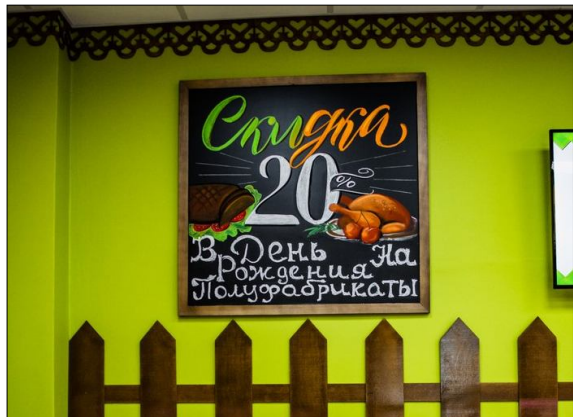 Скидка
20%
В День На
Рождения
Полуфабрикаты